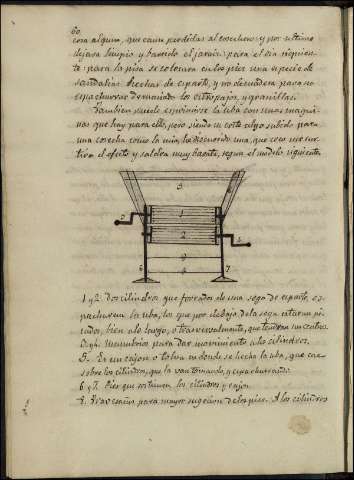 60
cosa alguna, que cause perdidas al cosechero; y por ultimo
dejara limpio y barrido el jaraiz para el dia siguien-
te: para la pisa se colocara en los pies una especie de
sandalias hechas de esparto, y no de madera para no
espachurrar demasiado los escobajos, y granillas.
Tambien suele esprimirse la uba con unas maqui-
nas que hay para ello, pero siendo su coste algo subido para
una cosecha como la mia, he discurrido una, que creo me sur-
tira el efecto y saldra muy barata, segun el modelo siguiente.
5
3
1
2
4
8
6
8
7
1 y 2. Dos cilindros que forrados de una soga de esparto, es-
pachurren la uba, los que por debajo de la soga estaran pi-
cados, bien a lo largo, o trasversalmente, que tendran un centro.
3 y 4. Manubrios para dar movimiento a los cilindros.
5. Es un cajon o tolva en donde se hecha la uba, que cae
sobre los cilindros, que la van tomando, y espachurrando.
6 y 7. Pies que sostienen los cilindros y cajon.
8. Travesaños para mayor sugecion de los pies. A los cilindros